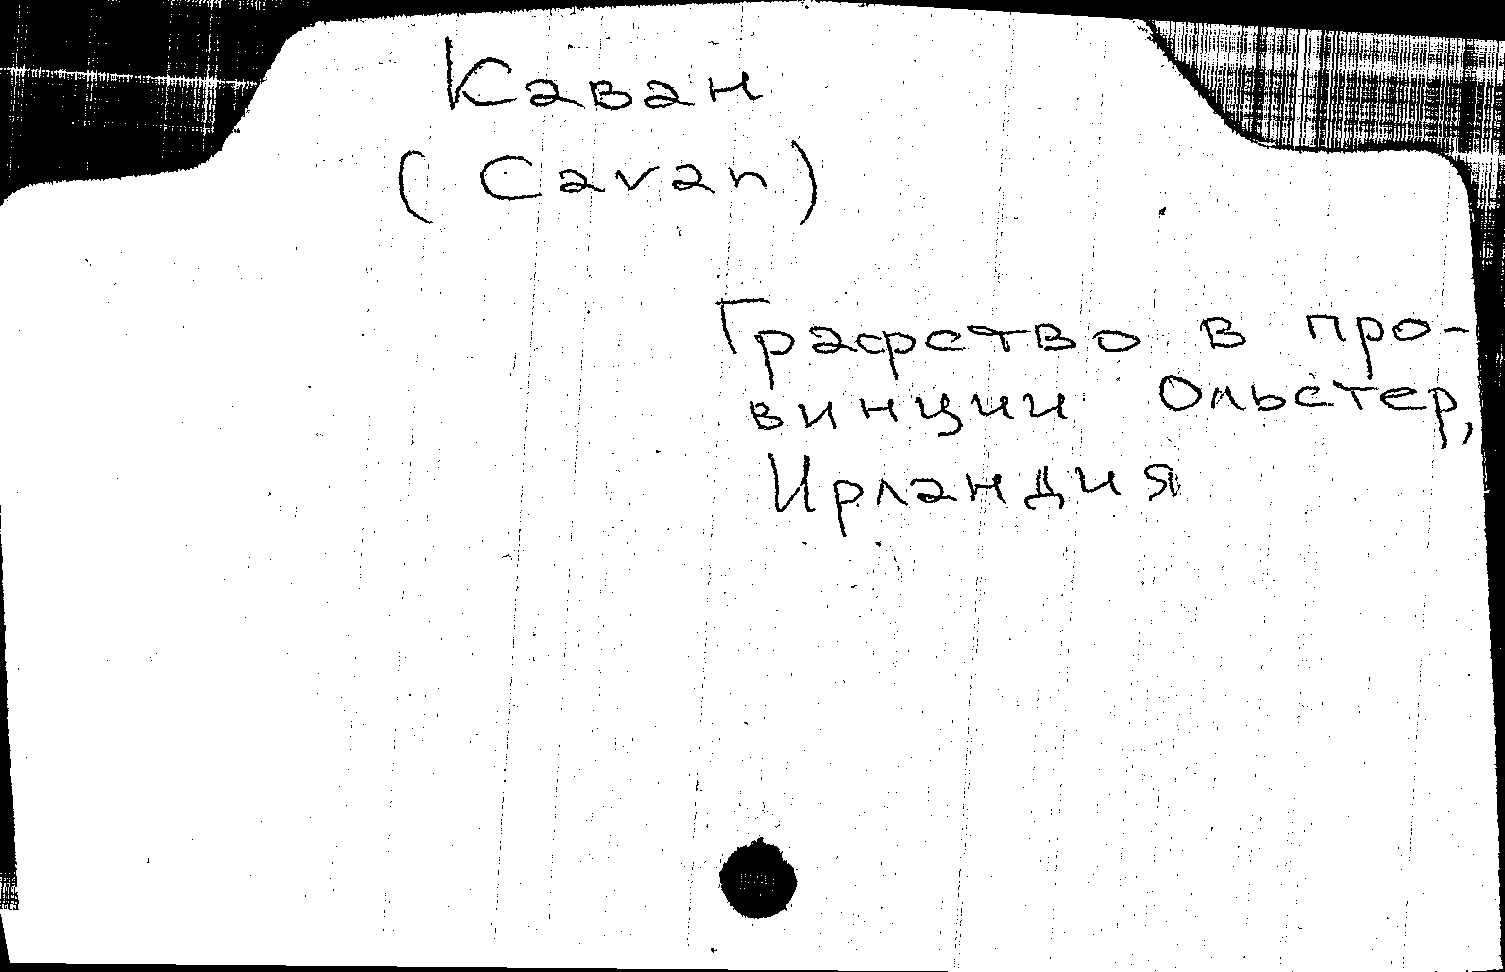 Каван
(Cavan)
Графство в про-
винции Ольстер,
Ирландия